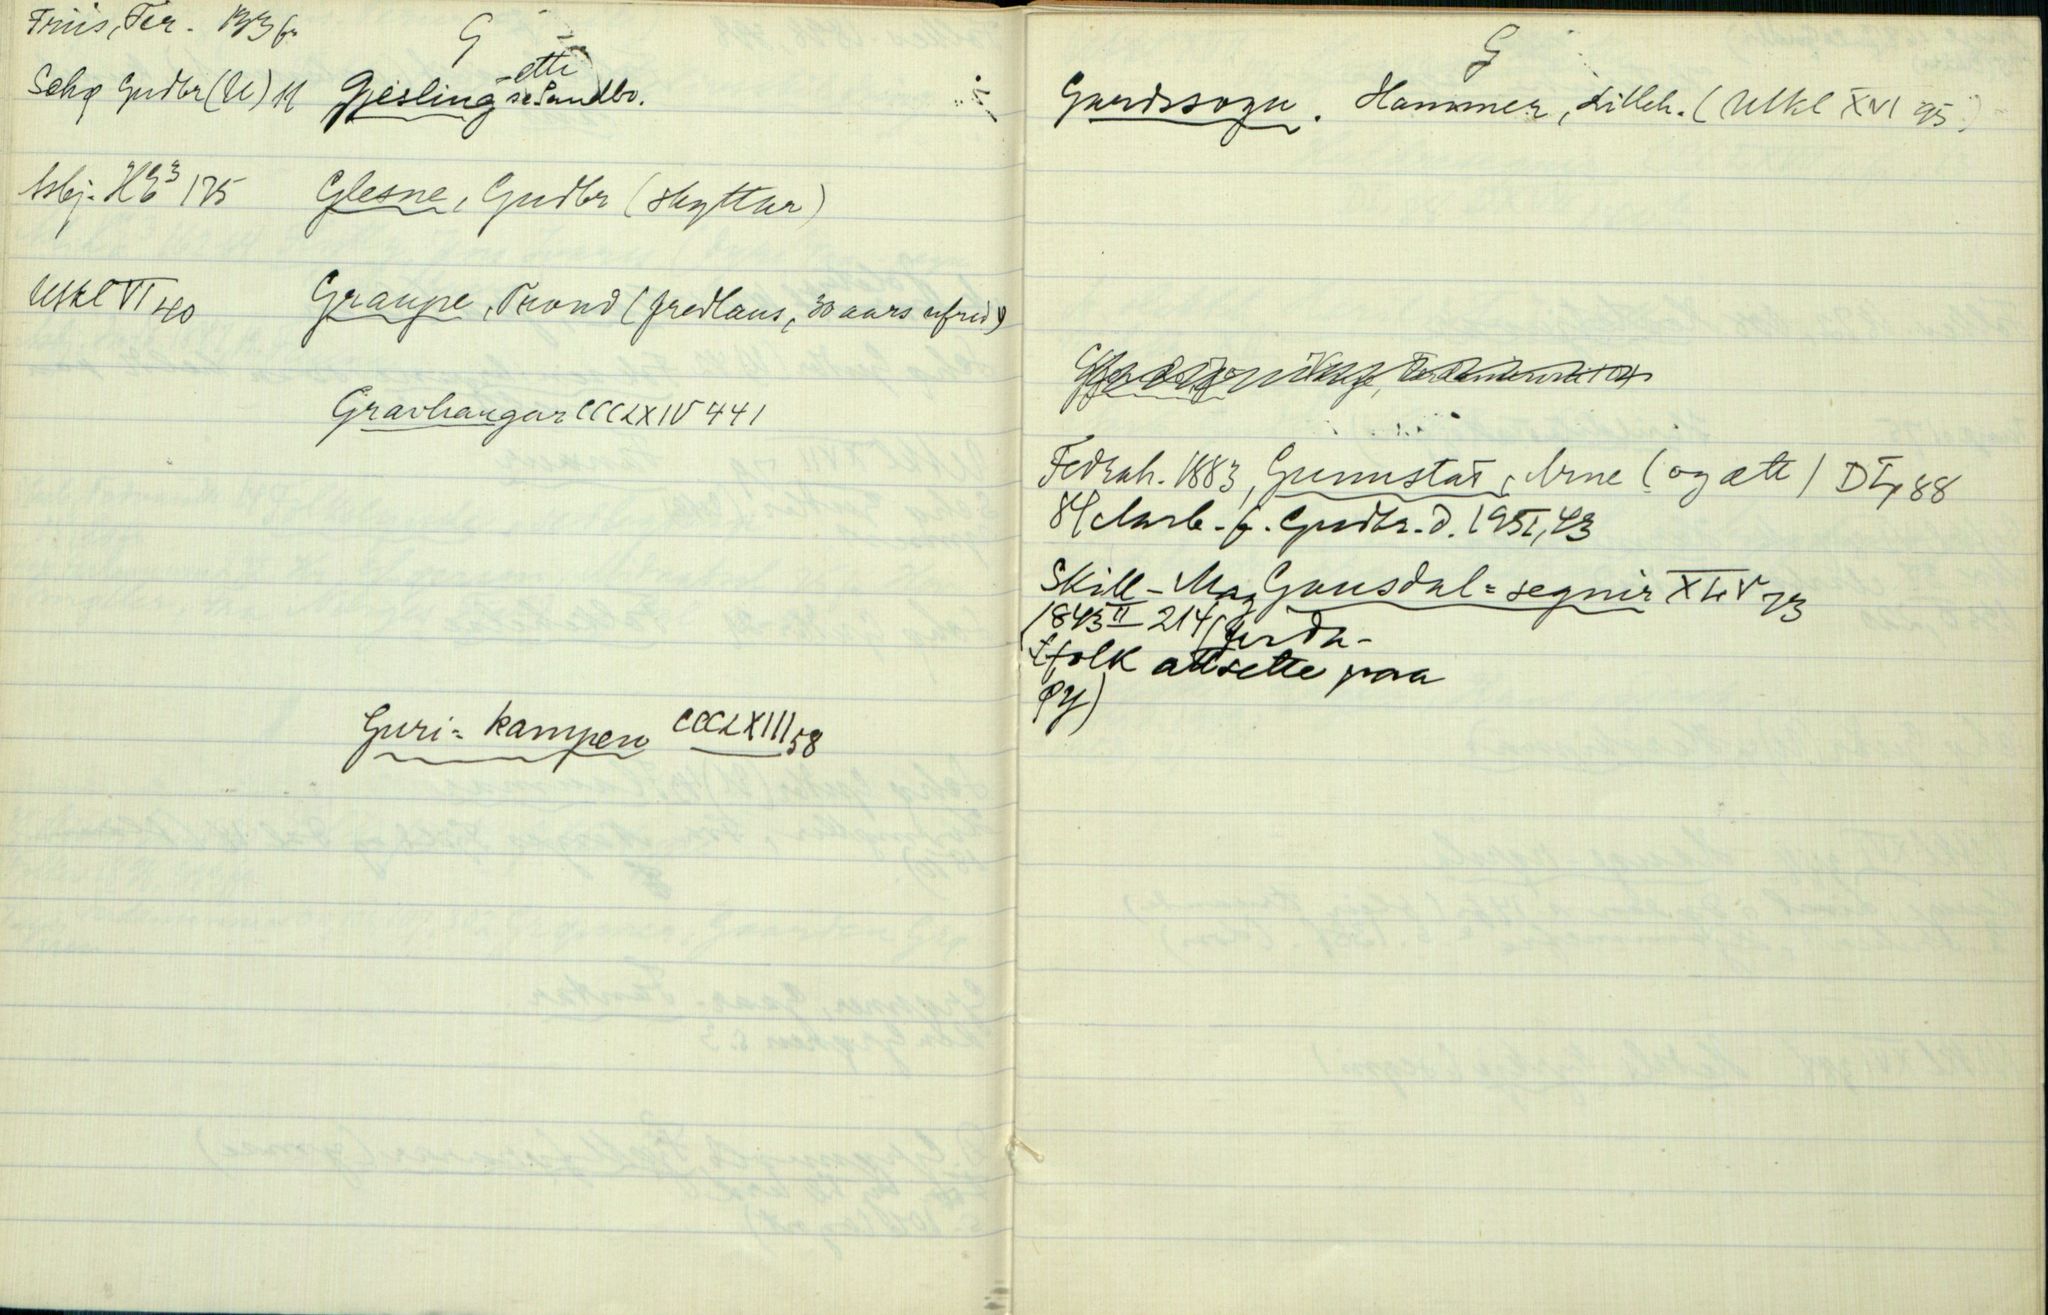 Friis, Fer. 133 fr
G
ette
Schø Gudbr (U) 11 Gjesling - se Sandbo.
Asbj. HE³ 175 Glesne, Gudbr (skyttar)
Utkl VI 40 Graupe, Trond (fredlaus, 30 aars ufred)
Gravhaugar CCCLXIV 441
Guri-kampen CCCLXIII 58
G
Gardssogn. Hammer, Lilleh. (Utkl XVI 95)
Fedrah. 1883, Gunnstad, Arne (og ætt) DI, 88
84 Aarb. f. Gudbr.d. 1951, 43
Skill-Mag Gausdal-segnir XLV 73
(1843 II 214 (Jorda-
folk attsette paa
øy)